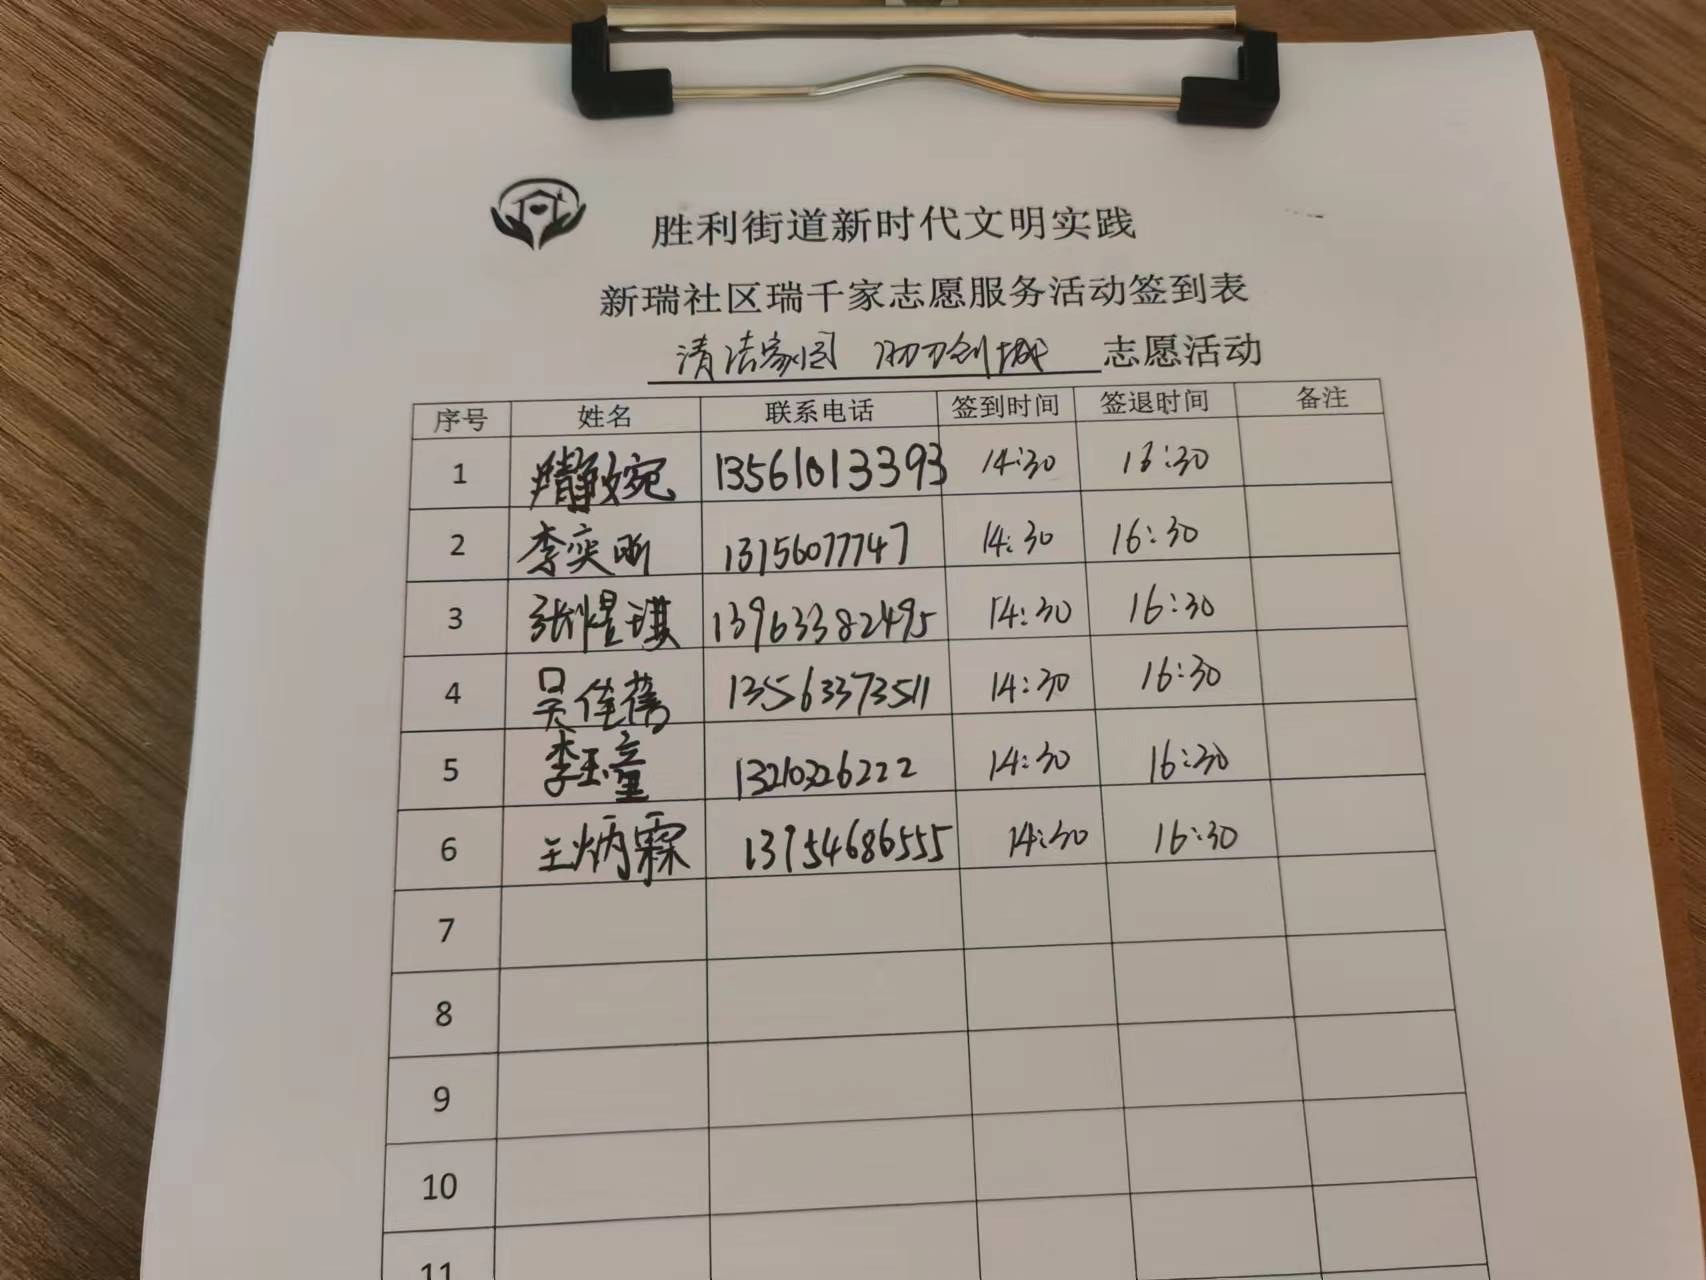 胜利街道新时代文明实践
新瑞社区瑞千家志愿服务活动签到表
清洁家园 助力创城 志愿活动
序号 姓名 联系电话 签到时间 签退时间 备注
1 隋静婉 13561013393 14:30 16:30
2 李奕昕 13156077747 14:30 16:30
3 张煜琪 13963382495 14:30 16:30
4 吴佳蓓 13563373511 14:30 16:30
5 李玉童 13210326222 14:30 16:30
6 王炳霖 13954686555 14:30 16:30
7
8
9
10
11